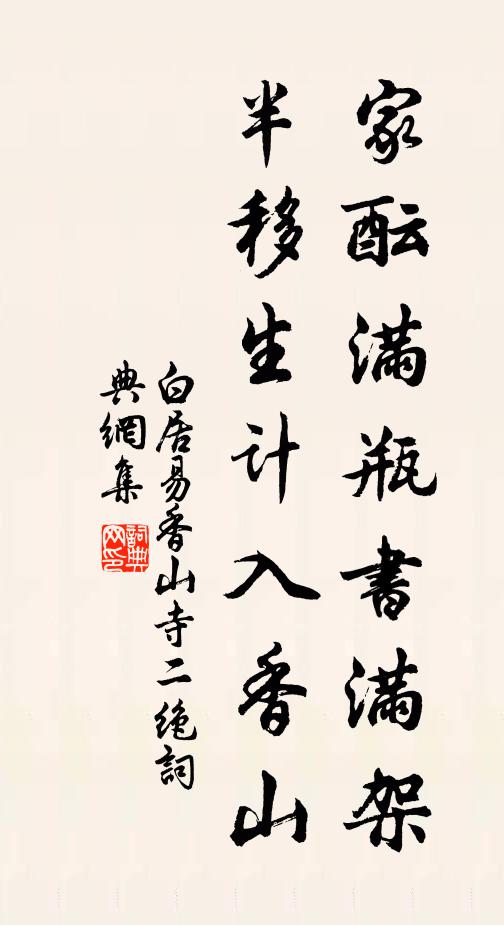 家酝滿瓶書滿架
半移生計入香山
白居易香山寺二绝詞
典網集
詞典網印